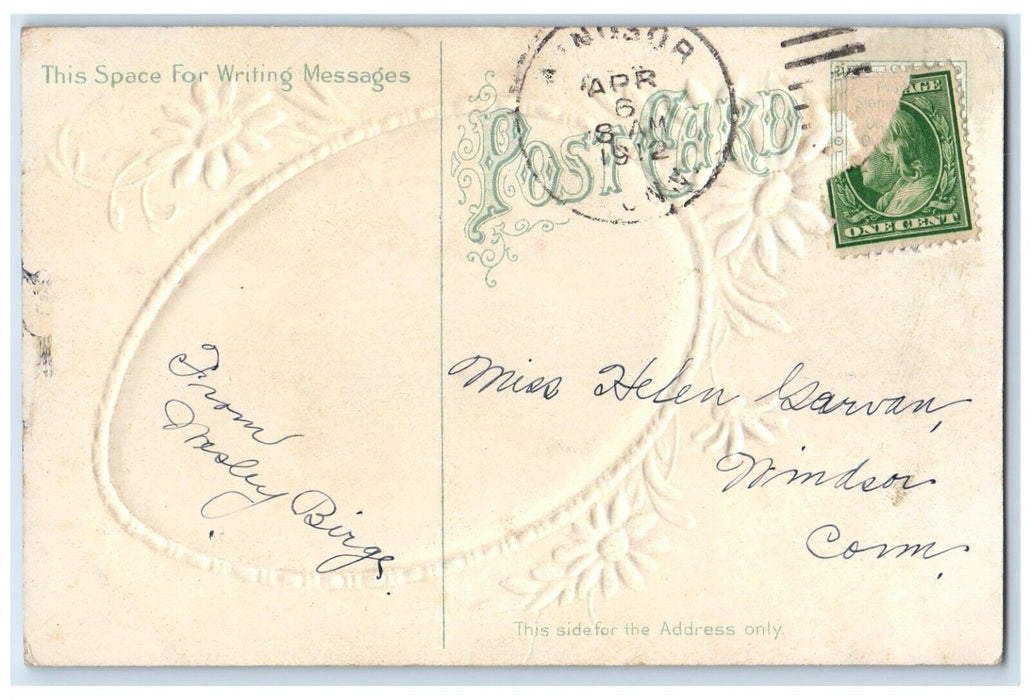 This Space For Writing Messages
WINDSOR
APR
6
8 AM
1912
CONN.
POST CARD
AGE
ONE CENT
From
Wesley Birge.
Miss Helen Garvan,
Windsor
Conn.
This side for the Address only.